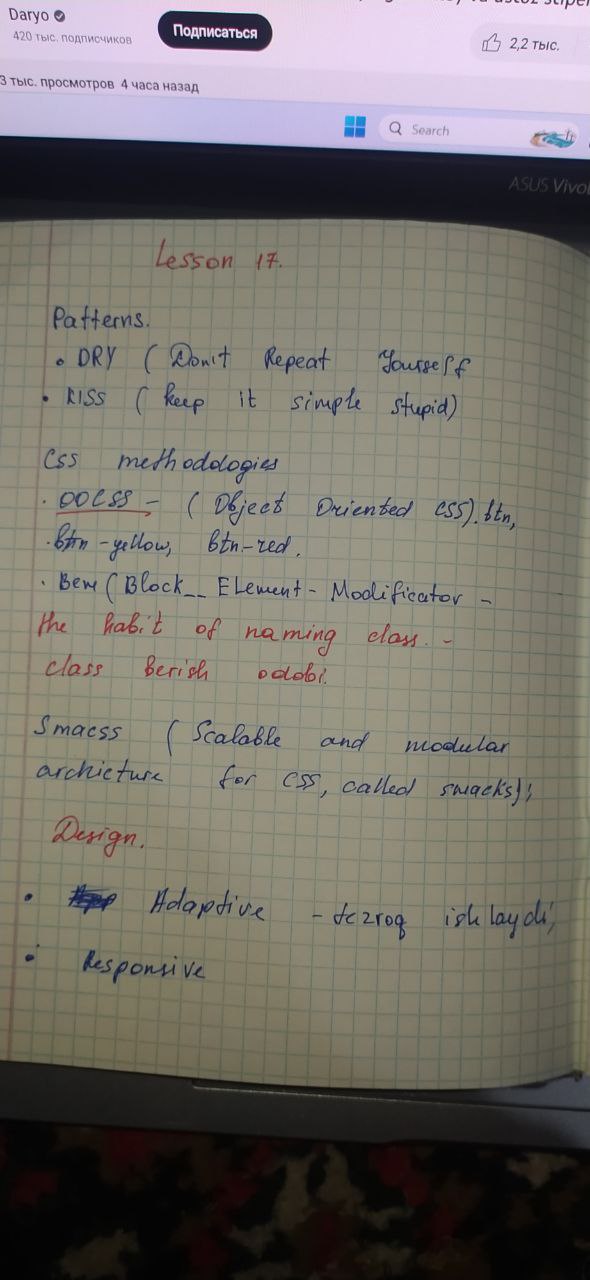 Daryo
420 тыс. подписчиков
Подписаться
2,2 тыс.
3 тыс. просмотров 4 часа назад
Search
ASUS Vivo
Lesson 17.
Patterns.
• DRY ( Don't Repeat Yourself
• KISS ( keep it simple stupid)
Css methodologies
• OOCSS - ( Object Oriented CSS). btn,
btn-yellow, btn-red.
• Bem ( Block__ Element - Modificator -
the habit of naming class. -
class berish odobi.
Smacss ( Scalable and modular
archicture for css, called smacks);
Design.
• Adaptive - tezroq ishlaydi,
• Responsive